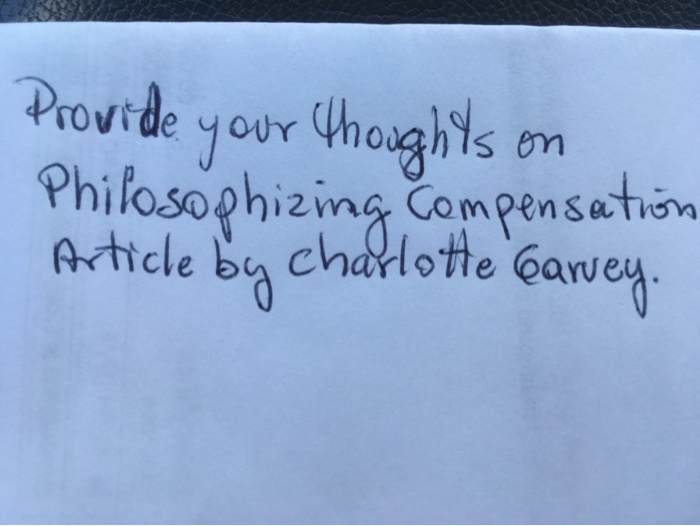 Provide your thoughts on
Philosophizing Compensation
Article by Charlotte Garvey.